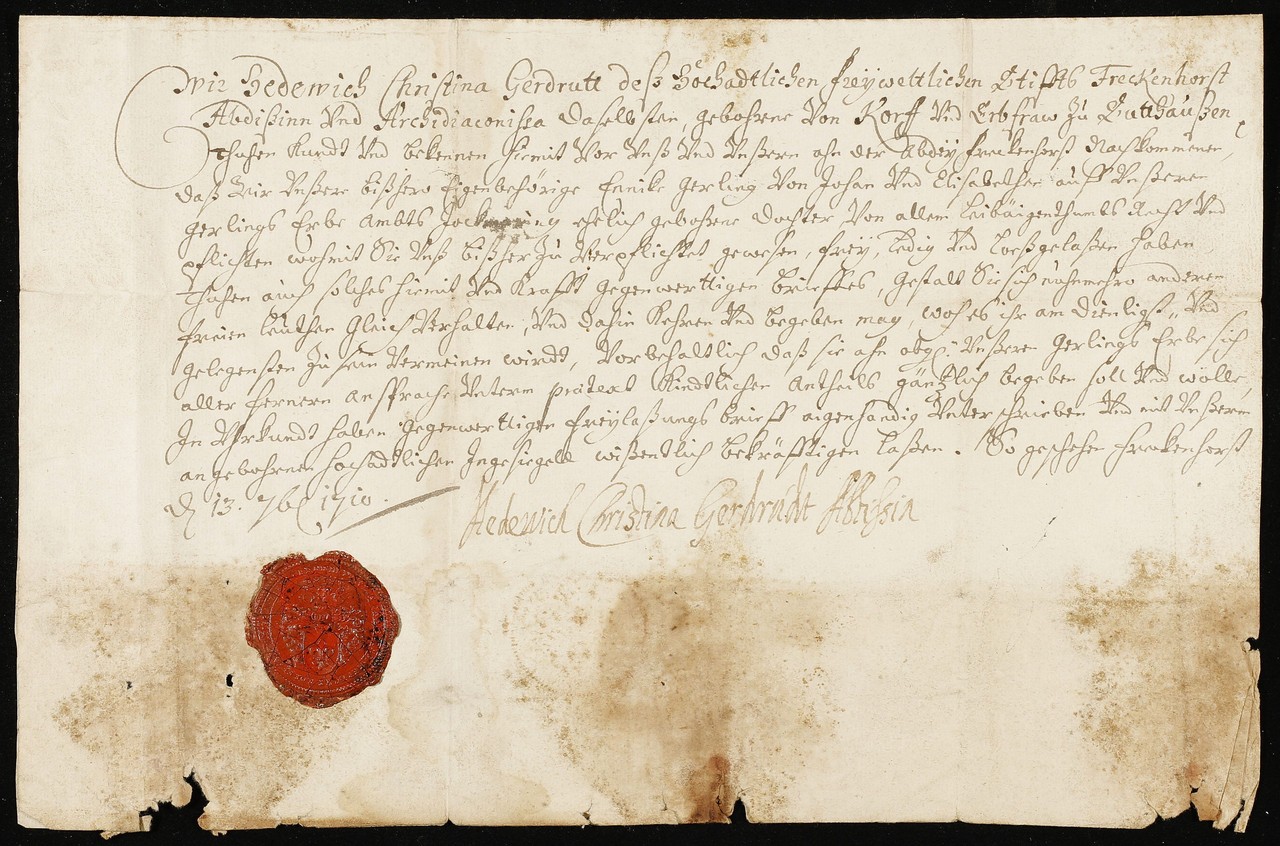 Wir Hedewich Christina Gerdrutt deß Hochadtlichen freÿweltlichen Stiffts Freckenhorst
Abdißinn Vnd Archidiaconissa daselbsten, gebohrne Von Korff Vnd Erbfraw Zu Sutthaußen
Thuhen Kundt Vnd bekennen hiemit Vor Vnß Vnd Vnßern ahn der Abdeÿ freckenhorst Nachkommenen,
daß Wir Vnßere bißhero Eigenbehörige Ennike Gerling Von Johan Vnd Elisabethen auff Vnßeren
Gerlings Erbe Ambts ehelich gebohrene dochter Von allem leibäigenthumbs Recht Vnd
pflichten wohmit Sie Vnß bißher Zu Verpflichtet gewesen, freÿ, ledig Vnd loeßgelaßen haben
Thuhen auch solches hiemit Vnd Krafft gegenwerttigen brieffes, gestalt Sie sich nuhemehro anderen
freien leuthen gleich Verhalten, Vnd dahin Kehren Vnd begeben mag, woh es ihr am dienligst, Vnd
gelegensten Zu sein Vermeinen wirdt, Vorbehaltlich daß sie ahn obg: Vnßeren Gerlings Erbe sich
aller fernern ansprache Vnterm prätext Kindtlichen Antheils gäntzlich begeben soll Vnd wölle,
In Uhrkundt haben gegenwerttigen freÿlaßungs brieff aigenhändig Vnterschrieben Vnd mit Vnßerm
angebohrnen hochadtlichen Ingesiegell wißentlich bekräfftigen laßen. So geschehen freckenhorst
d 13. 7b 1710.
Hedewich Christina Gerdrudt Abtißin